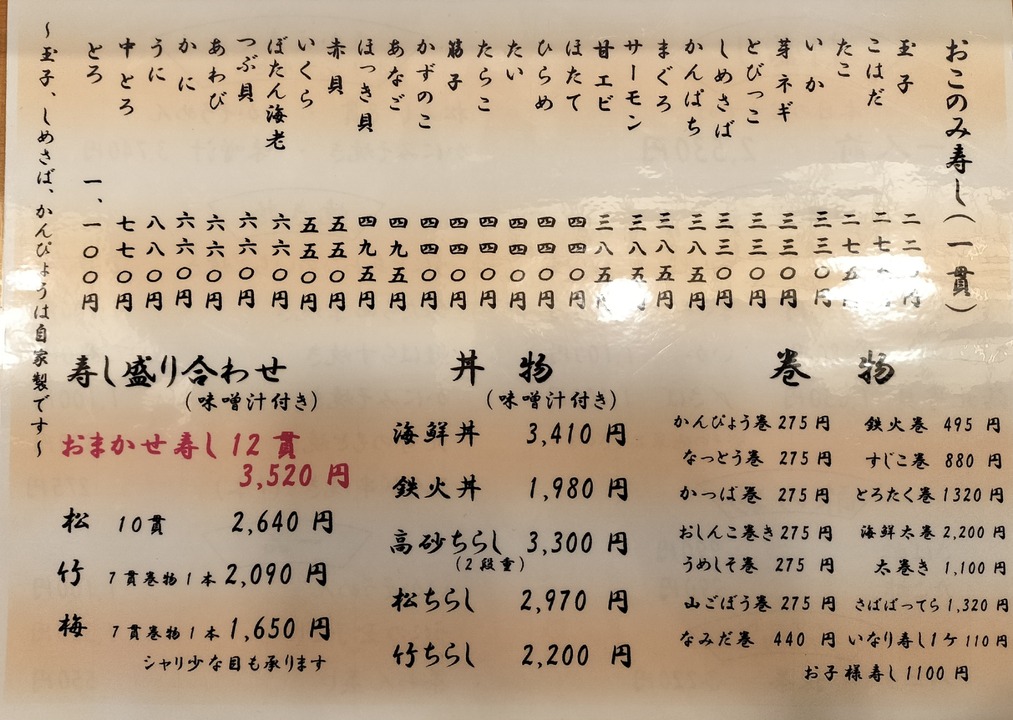 おこのみ寿し(一貫)
玉子 二二〇円
こはだ 二七
たこ 二七五円
いか 三三〇円
芽ネギ 三三〇円
とびっこ 三三〇円
しめさば 三三〇円
かんぱち 三八五円
まぐろ 三八五円
サーモン 三八五円
甘エビ 三八五円
ほたて 四四〇円
ひらめ 四四〇円
たい 四四〇円
たらこ 四四〇円
筋子 四四〇円
かずのこ 四四〇円
あなご 四九五円
ほっき貝 四九五円
赤貝 五五〇円
いくら 五五〇円
ぼたん海老 六六〇円
つぶ貝 六六〇円
あわび 六六〇円
かに 六六〇円
うに 八八〇円
中とろ 七七〇円
とろ 一、一〇〇円
~玉子、しめさば、かんぴょうは自家製です~
巻物
鉄火巻 495 円
すじこ巻 880 円
とろたく巻 1320 円
海鮮太巻 2,200 円
太巻き 1,100 円
さばばってら 1,320 円
いなり寿し1ケ 110 円
かんぴょう巻 275 円
なっとう巻 275 円
かっぱ巻 275 円
おしんこ巻き 275 円
うめしそ巻 275 円
山ごぼう巻 275 円
なみだ巻 440 円
お子様寿し 1100 円
丼物
(味噌汁付き)
海鮮丼 3,410 円
鉄火丼 1,980 円
高砂ちらし 3,300 円
(2段重)
松ちらし 2,970 円
竹ちらし 2,200 円
寿し盛り合わせ
(味噌汁付き)
おまかせ寿し 12 貫
3,520 円
松 10貫 2,640 円
竹 7貫巻物1本 2,090 円
梅 7貫巻物1本 1,650 円
シャリ少な目も承ります